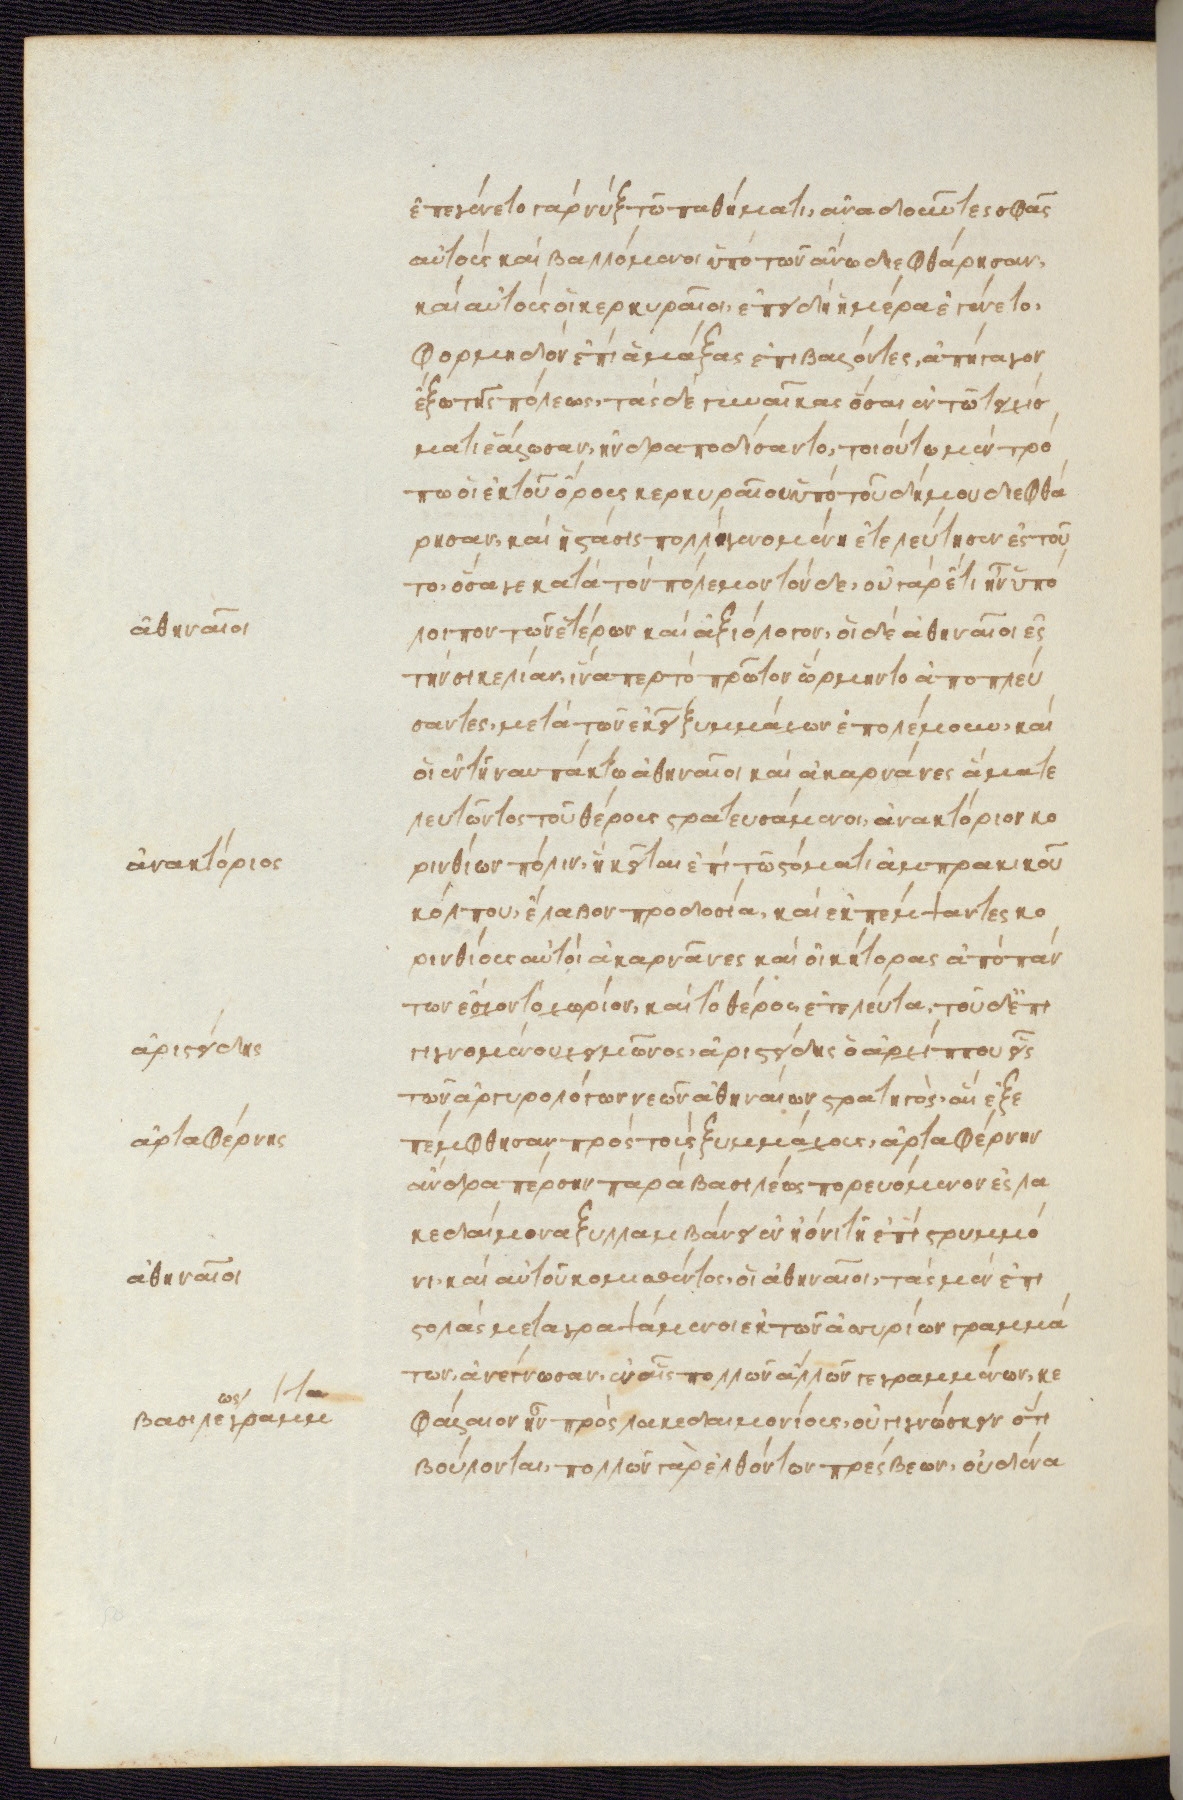 ἐπεγένετο γὰρ νὺξ τῶ παθήματι, ἀναδοῦντες σφᾶς
αὐτοὺς καὶ βαλλόμενοι ὑπὸ τῶν ἄνω διεφθάρησαν,
καὶ αὐτοὺς οἱ κερκυραῖοι, ἐπειδὴ ἡμέρα ἐγένετο,
φορμηδὸν ἐπὶ ἁμάξας ἐπιβαλόντες, ἀπήγαγον
ἔξω τῆς πόλεως, τὰς δὲ γυναῖκας ὅσαι ἐν τῶ τειχίσ
ματι ἑάλωσαν, ἠνδραποδίσαντο, τοιούτω μὲν τρό
πω οἱ ἐκ τοῦ ὄρους κερκυραῖοι ὑπὸ τοῦ δήμου διεφθά
ρησαν, καὶ ἡ στάσις πολλὴ γενομένη ἐτελεύτησεν ἐς τοῦ
το, ὅσα γε κατὰ τὸν πόλεμον τόνδε, οὐ γὰρ ἔτι ἦν ὑπό
ἀθηναῖοι
λοιπον τῶν ἑτέρων καὶ ἀξιόλογον, οἱ δὲ ἀθηναῖοι ἐς
τὴν σικελίαν, ἵνα περ τὸ πρῶτον ὥρμηντο ἀποπλεύ
σαντες, μετὰ τῶν ἐκεῖ ξυμμάχων ἐπολέμουν, καὶ
οἱ ἐν τῆ ναυπάκτω ἀθηναῖοι καὶ ἀκαρνάνες ἅμα τε
λευτῶντος τοῦ θέρους στρατευσάμενοι, ἀνακτόριον κο
ἀνακτόριος
ρινθίων πόλιν, ἣ κεῖται ἐπὶ τῶ στόματι ἀμπρακικοῦ
κόλπου, ἔλαβον προδοσία, καὶ ἐκπέμψαντες κο
ρινθίους αὐτοὶ ἀκαρνᾶνες καὶ οἰκήτορας ἀπὸ πάν
των ἔσχον τὸ χωρίον, καὶ τὸ θέρος ἐτελεύτα, τοῦ δ' ἐπι
ἀριστείδης
γιγνομένου χειμῶνος, ἀριστείδης ὁ ἀρχίππου εἷς
τῶν ἀργυρολόγων νεῶν ἀθηναίων στρατηγὸς, αἳ ἐξε
ἀρταφέρνης
πέμφθησαν πρὸς τοὺς ξυμμάχους, ἀρταφέρνην
ἄνδρα πέρσην παρὰ βασιλέως πορευόμενον ἐς λα
κεδαίμονα ξυλλαμβάνει ἐν ἠϊόνι τῆ ἐπὶ στρυμμό
ἀθηναῖοι
νι, καὶ αὐτοῦ κομισθέντος, οἱ ἀθηναῖοι, τὰς μὲν ἐπι
στολὰς μεταγραψάμενοι ἐκ τῶν ἀσσυρίων γραμμά
των, ἀνέγνωσαν, ἐν αἷς πολλῶν ἄλλων γεγραμμένων, κε
βασιλέως γράμματα
φάλαιον ἦν πρὸς λακεδαιμονίους, οὐ γιγνώσκειν ὅτι
βούλονται, πολλῶν γὰρ ἐλθόντων πρέσβεων, οὐδένα